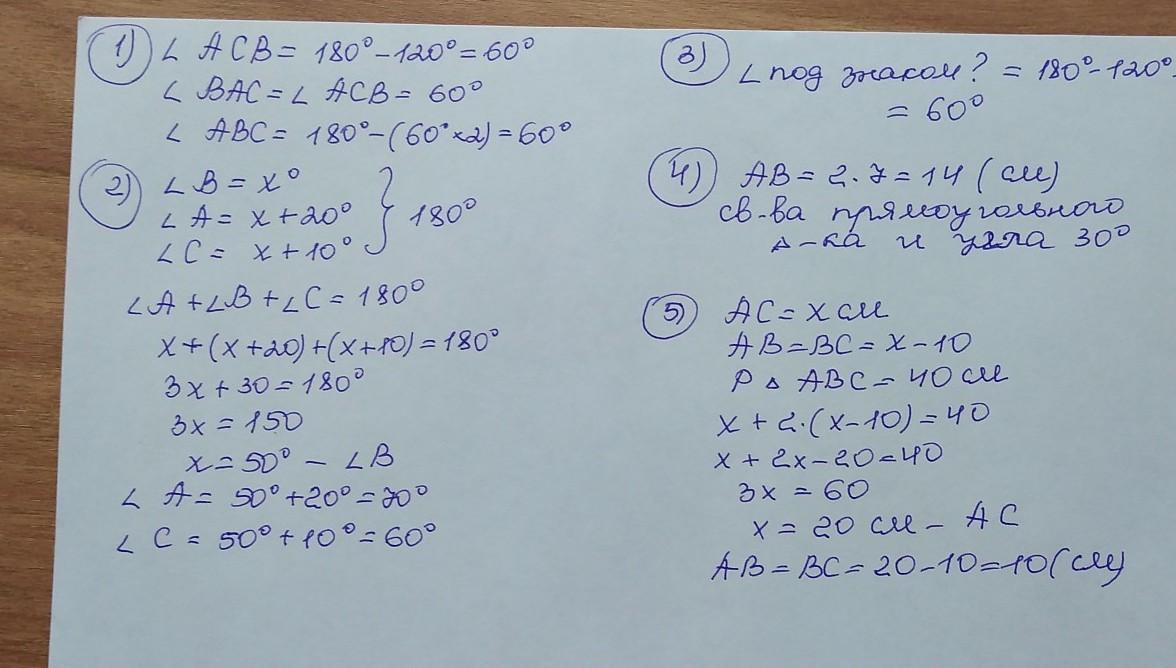 1) ∠ ACB = 180° - 120° = 60°
∠ BAC = ∠ ACB = 60°
∠ ABC = 180° - (60° × 2) = 60°
2) ∠B = x°
∠A = x + 20° } 180°
∠C = x + 10°
∠A + ∠B + ∠C = 180°
x + (x + 20) + (x + 10) = 180°
3x + 30 = 180°
3x = 150
x = 50° - ∠B
∠ A = 50° + 20° = 70°
∠ C = 50° + 10° = 60°
3) ∠ под знаком ? = 180° - 120°
= 60°
4) AB = 2 · 7 = 14 (см)
св-ва прямоугольного
Δ-ка и угла 30°
5) AC = x см
AB = BC = x - 10
P Δ ABC = 40 см
x + 2 · (x - 10) = 40
x + 2x - 20 = 40
3x = 60
x = 20 см - AC
AB = BC = 20 - 10 = 10 (см)